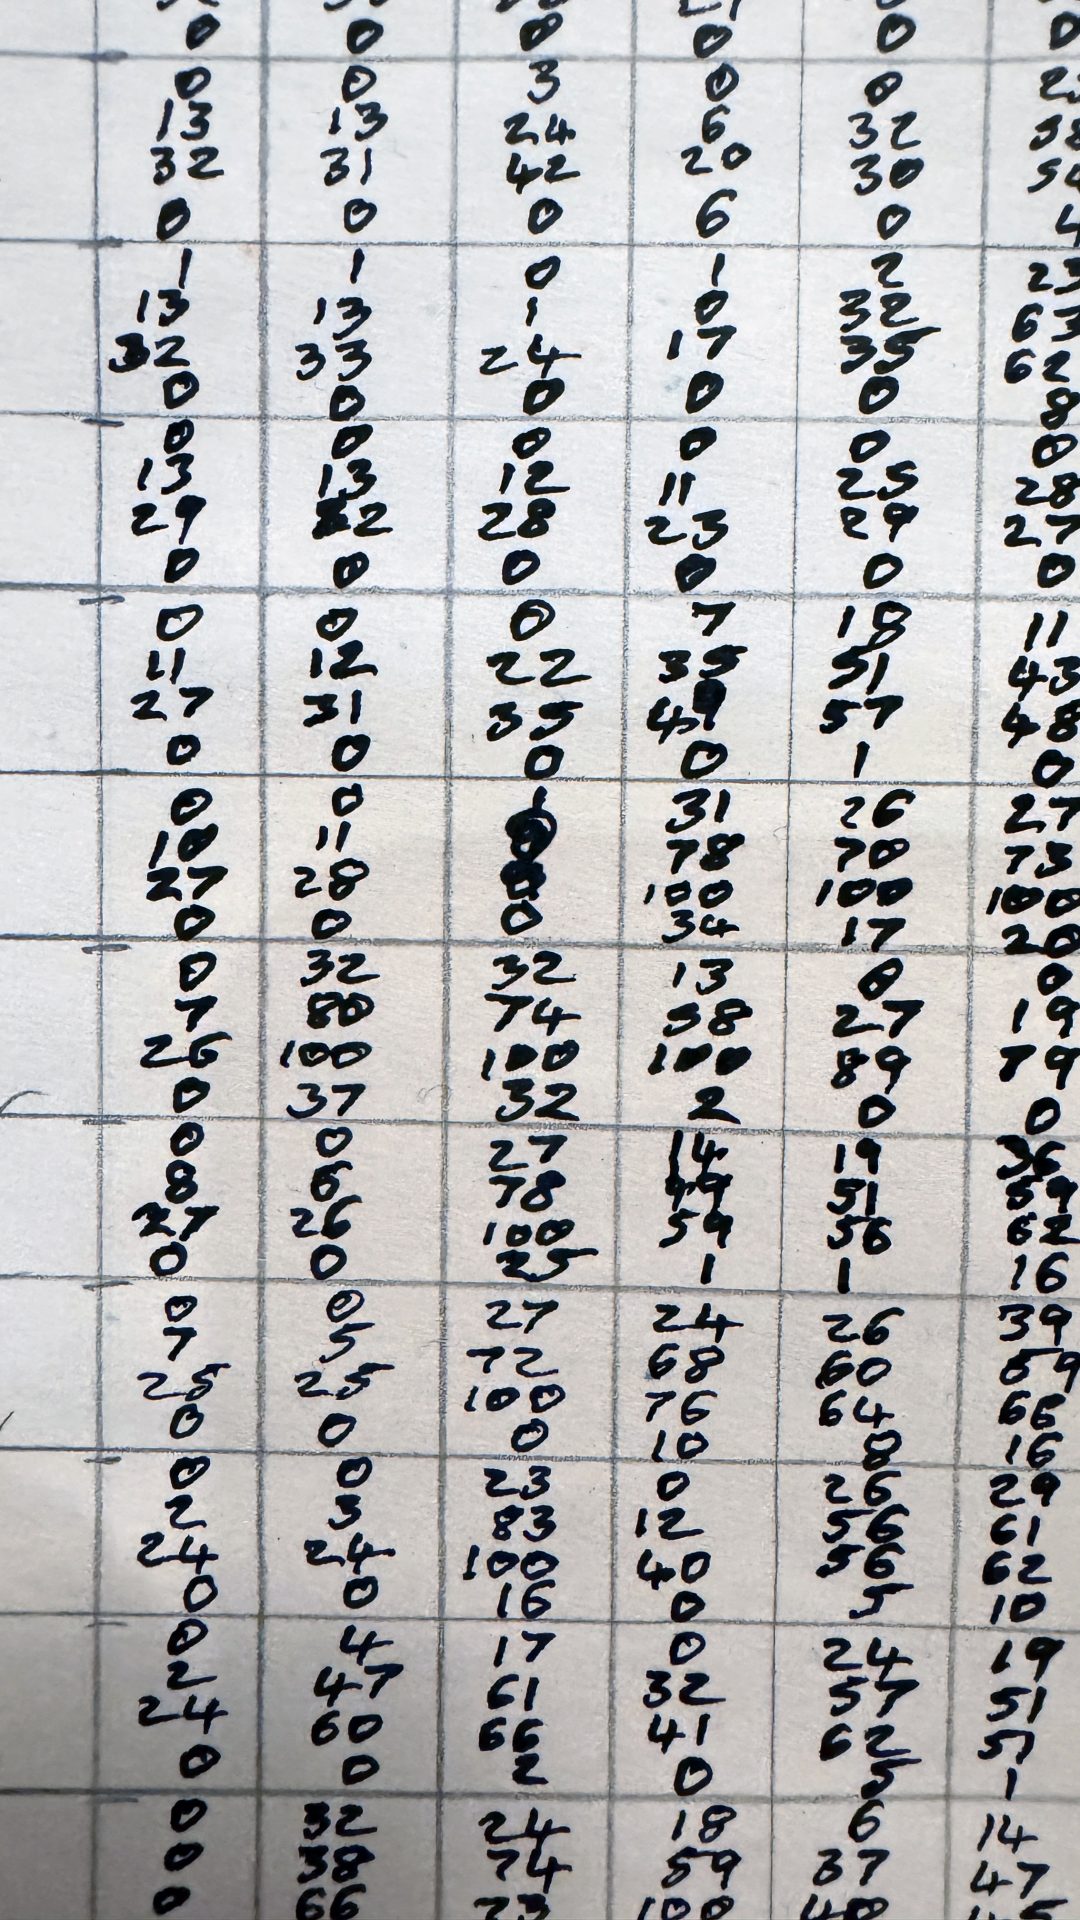 0 0 0 0 0 0
0 0 3 0 0
13 13 24 6 32
32 31 42 20 30
0 0 0 6 0 4
1 1 0 1 2 23
13 13 1 0 32 63
32 33 24 17 35 62
0 0 0 0 0 8
0 0 0 0 0 0
13 13 12 11 25 28
29 32 28 23 29 27
0 0 0 0 0 0
0 0 0 7 18 11
11 12 22 35 51 43
27 31 35 49 57 48
0 0 0 0 1 0
0 0 1 31 26 27
10 11 78 70 73
27 28 100 100 100
0 0 0 34 17 20
0 32 32 13 0 0
7 80 74 58 27 19
26 100 100 100 89 79
0 37 32 2 0 0
0 0 27 14 19 36
8 6 78 49 51 59
27 26 100 59 56 62
0 0 25 1 1 16
0 0 27 24 26 39
7 5 72 68 60 69
25 25 100 76 64 66
0 0 0 10 8 16
0 0 23 0 26 29
2 3 83 12 56 61
24 24 100 40 56 62
0 0 16 0 5 10
0 4 17 0 24 19
2 47 61 32 57 51
24 60 66 41 62 51
0 0 2 0 5 1
0 32 24 18 6 14
0 38 74 59 37 47
0 66 73 100 40